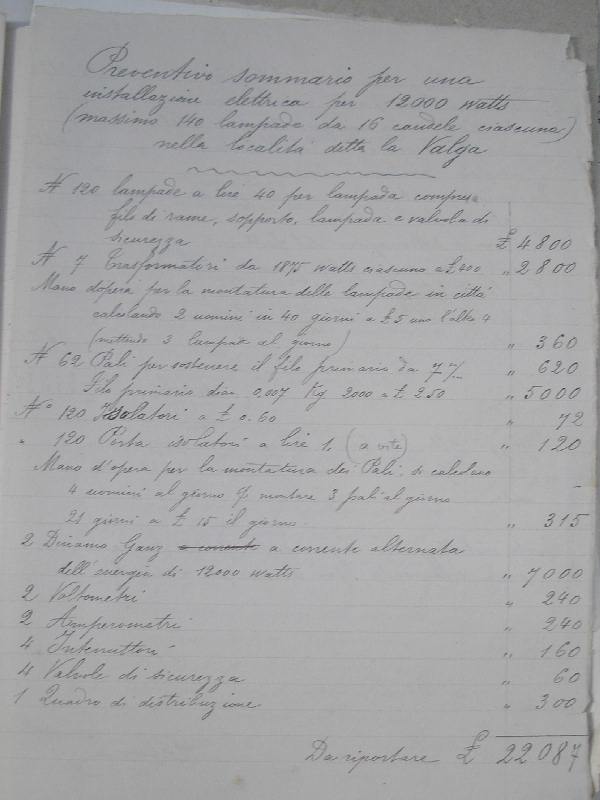 Preventivo sommario per una
installazione elettrica per 12000 watts
(massimo 140 lampade da 16 candele ciascuna)
nella località detta la Valga
N 120 lampade a lire 40 per lampada compreso
filo di rame, sopporto, lampada e valvola di
sicurezza £ 4800
N 7 Trasformatori da 1875 watts ciascuno a £ 400 „ 2800
Mano d'opera per la montatura delle lampade in città
calcolando 2 uomini in 40 giorni a £ 5 uno l'altro 4
(mettendo 3 lampade al giorno) „ 360
N 62 Pali per sostenere il filo primario da 7 m/ „ 620
Filo primario dia. 0,007 Kg 2000 a £ 2.50 „ 5000
N° 120 Isolatori a £ 0.60 „ 72
„ 120 Porta isolatori a lire 1. (a vite) „ 120
Mano d'opera per la montatura dei Pali, si calcolano
4 uomini al giorno p montare 3 pali al giorno
21 giorni a £ 15 il giorno „ 315
2 Dinamo Ganz a corrente a corrente alternata
dell'energia di 12000 watts „ 7000
2 Voltometri „ 240
2 Amperometri „ 240
4 Interruttori „ 160
4 Valvole di sicurezza „ 60
1 Quadro di distribuzione „ 300
Da riportare £ 22087